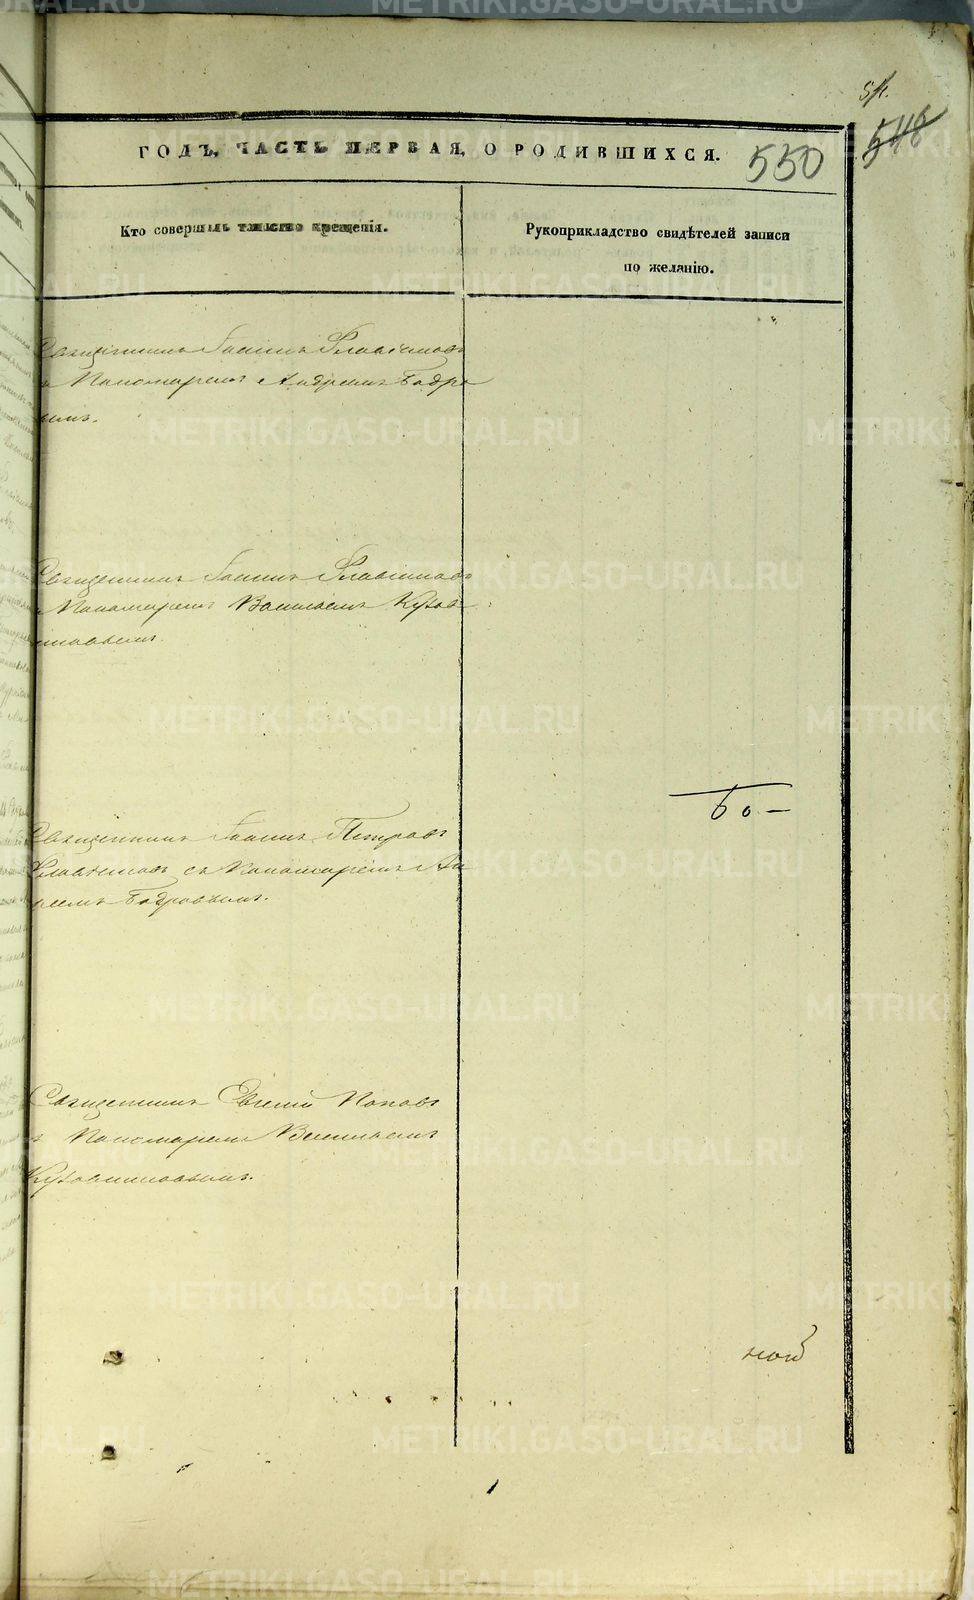 548
ГОДЪ, ЧАСТЬ ПЕРВАЯ, О РОДИВШИХСЯ. 550
Кто совершалъ таинство крещенія.
Рукоприкладство свидѣтелей записи
по желанію.
Священникъ Іоаннъ Флавіановъ
и Пономаремъ Андреемъ Бодро
вымъ.
Священникъ Іоаннъ Флавіановъ
и Пономаремъ Васильемъ
Бо-
Священникъ Іоаннъ Петровъ
Флавіановъ съ Пономаремъ Ан
реемъ Бодровымъ.
Священникъ Евгеній Поповъ
и Пономаремъ Васильемъ
ной
METRIKI.GASO-URAL.RU